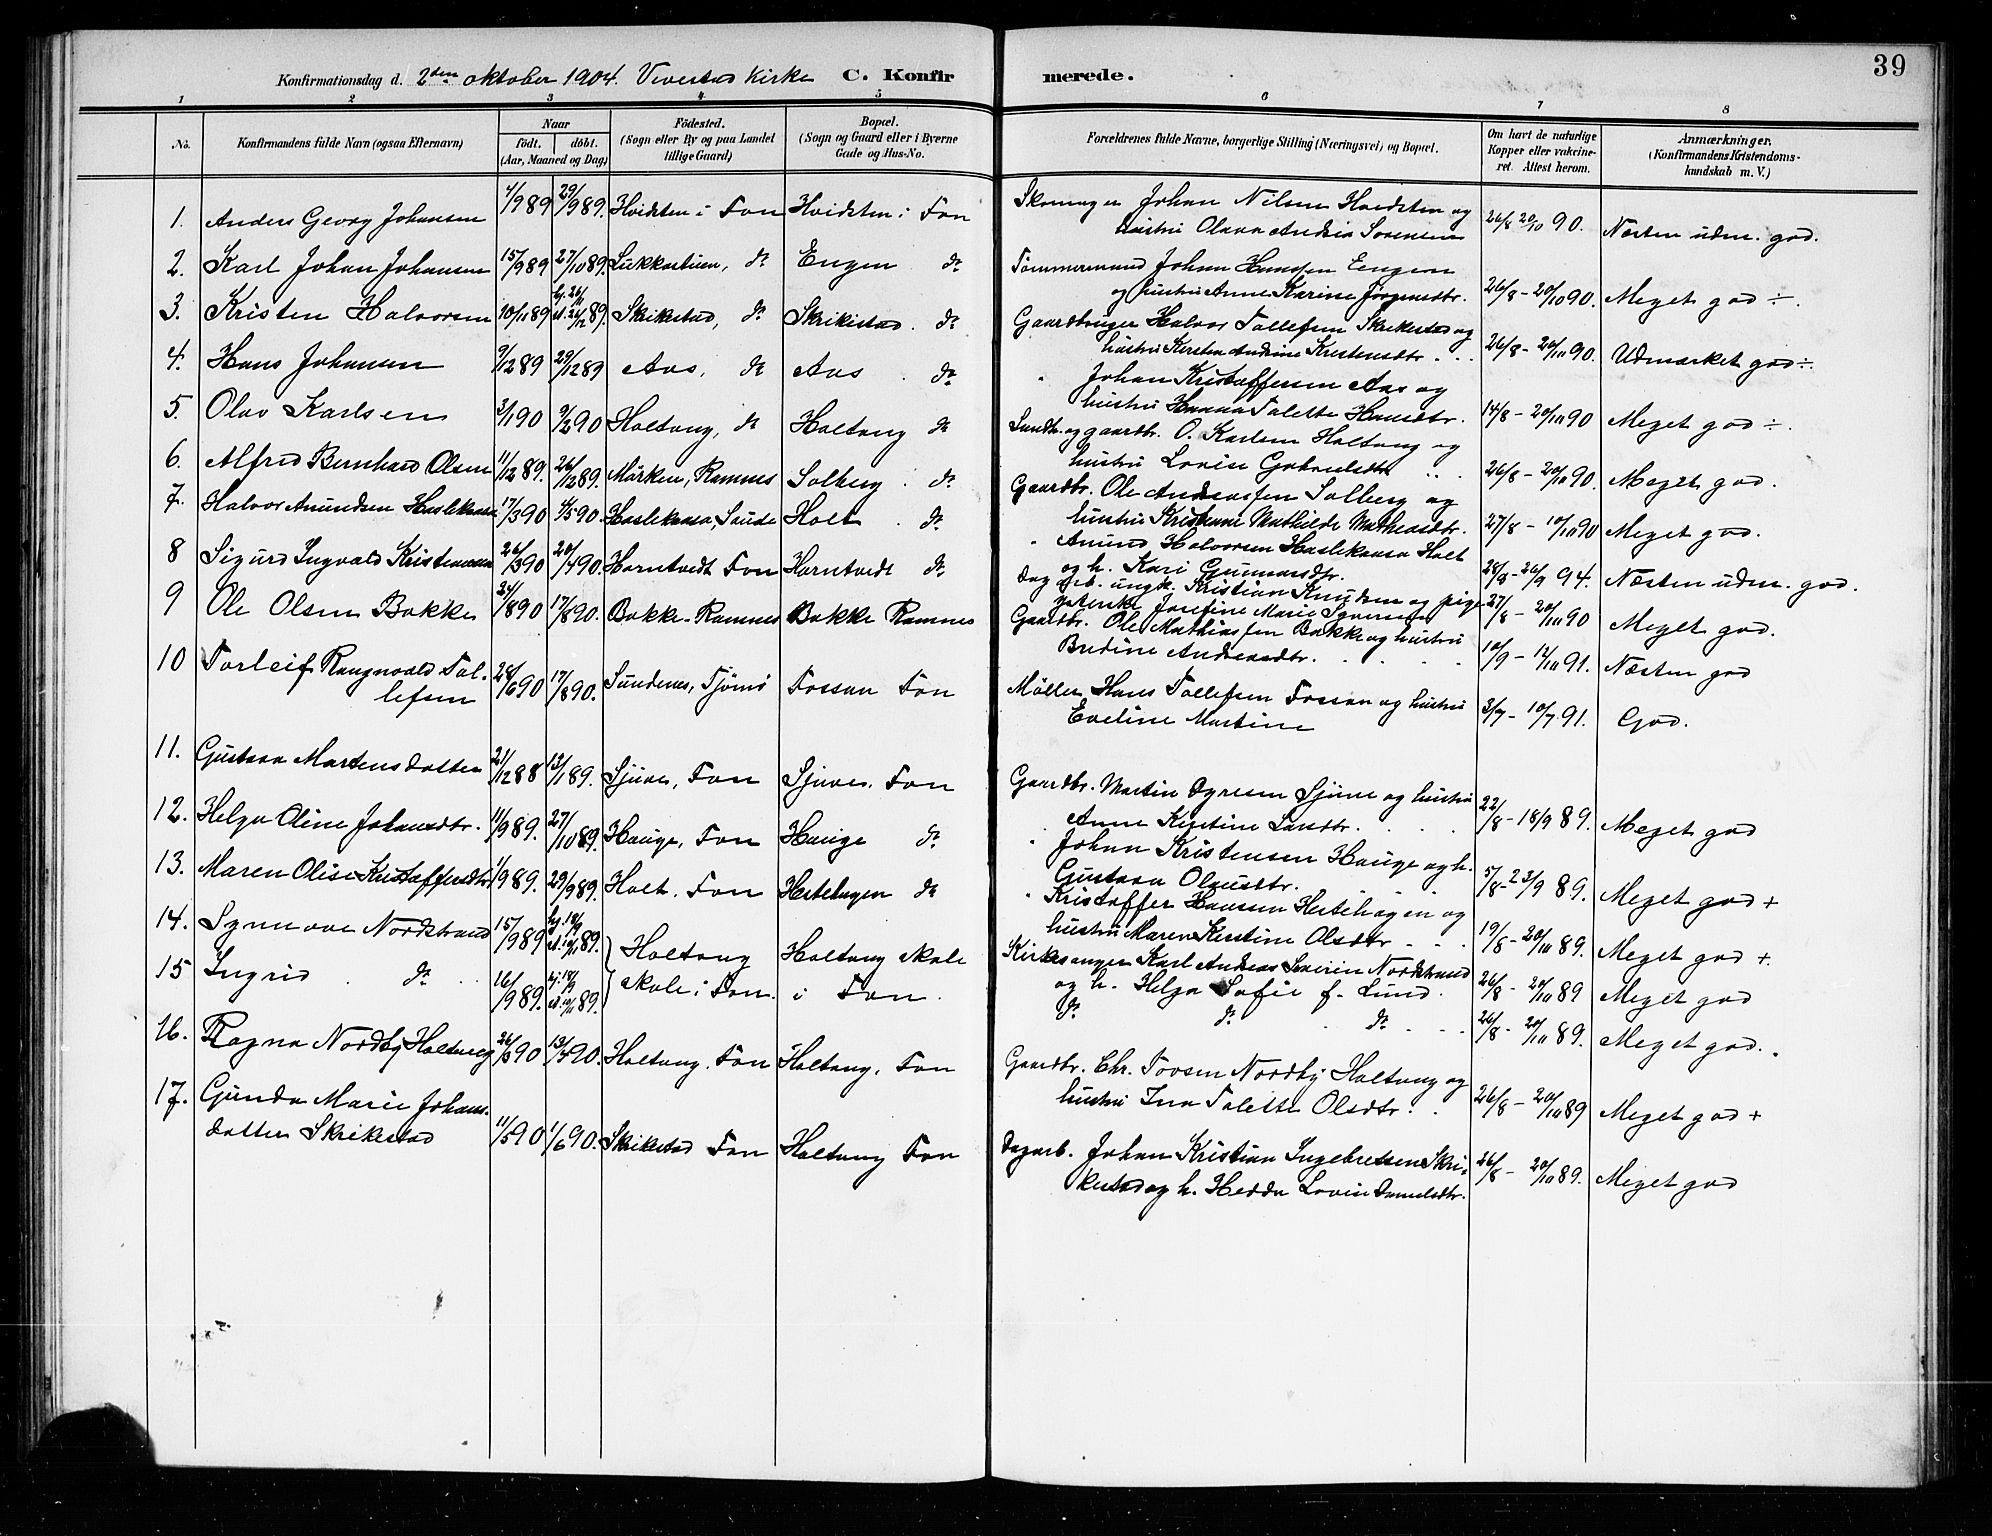 39
Konfirmationsdag d. 2den oktober 1904. Vivestad Kirke C. Konfirmerede.
1 2 3 4 5 6 7 8
No. Konfirmandens fulde Navn (ogsaa Efternavn) Naar født. døbt. (Aar, Maaned og Dag) Fødested. (Sogn eller By og paa Landet tillige Gaard) Bopæl. (Sogn og Gaard eller i Byerne Gade og Hus-No. Forældrenes fulde Navne, borgerlige Stilling (Næringsvei) og Bopæl. Om havt de naturlige Kopper eller vakcineret. Attest herom. Anmærkninger. (Konfirmandens Kristendomskundskab m. V.)
1. Anders Georg Johansen 4/989 29/989. Hvidsten i Fon Hvidsten i Fon Skomager Johan Nilsen Hvidsten og
hustru Olava Andrea Sørensen 26/8 20/10 90. Næsten udm. god.
2. Karl Johan Johansen 15/989 27/1089. Lukkastuen, do Engen do Tømmermand Johan Hansen Engen
og hustru Anne Karine Jørgensdtr. 26/8 - 20/1090. Meget god ÷.
3. Kristen Halvorsen 10/1189 hj. 26/11 st. 26/12 89. Skrikestad, do Skrikestad. do Gaardbruger Halvor Tollefsen Skrikestad og
hustru Kirsten Andrine Kristensdtr. 26/8 - 20/1090. Udmærket god ÷.
4. Hans Johansen 9/1289 29/1289 Aas, do Aas do " Johan Kristoffersen Aas og
hustru Hanna Talette Hansdtr. 14/8 - 20/1090 Meget god ÷.
5. Olav Karlsen 3/190 9/290 Holtung, do Holtung do Landh. og gaardbr. O. Karlsen Holtung og
hustru Lovise Gabrielsdtr 26/8 - 20/1090. Meget god.
6. Alfred Bernhard Olsen 11/1289. 26/1289. Mørken, Ramnes Solberg do Gaardbr. Ole Andreassen Solberg og
hustru Kristiane Mathilde Mathiasdtr. 27/8 - 10/1090 Meget god.
7. Halvor Amundsen Haslekaasa 17/390 4/590. Haslekaasa, Saude Holt do " Amund Halvorsen Haslekaasa Holt
og h. Kari Gunnarsdtr. 28/8 - 26/9 94. Næsten udm. god.
8 Sigurd Ingvald Kristiansen 26/390 20/490. Horntvedt Fon Horntvedt do Dagarb. ungk. Kristian Knudsen og pige
Josefine Marie Syversen 27/8 - 20/1090 Meget god.
9 Ole Olsen Bakke 24/890 17/890. Bakke. Ramnes Bakke Ramnes Gaardbr. Ole Mathiassen Bakke og hustru
Andreasdtr. 10/9 - 12/1091. Næsten god
10 Torleif Rangvald Tollefsen 28/690 17/890. Sundenes, Tjømø Fossan Fon Møller Hans Tollefsen Fossan og hustru
Eveline Martine 3/7 - 10/791. God.
11. Gustava Martensdatter 21/1288 13/189. Sjuve, Fon Sjuve. Fon Gaardbr. Martin Dyresen Sjuve og hustru
Anne Kirstine Larsdtr. 22/8 - 18/989. Meget god
12. Helga Oline Johansdtr. 11/989. 27/1089. Hauge, Fon Hauge do " Johan Kristensen Hauge og h.
Gustava Olausdtr. 5/8 - 23/9 89. Meget god +
13. Maren Olise Kristoffersdtr 1/989. 29/989. Holt. Fon Hestehagen do " Kristoffer Hansen Hestehagen og
hustru Maren Kirstine Olsdtr 19/8 - 20/1089. Meget god +.
14. Synnøve Nordstrand 15/989 hj. 18/9 st. 10/1189. Holtung Holtung skole Kirkesanger Karl Andreas Severin Nordstrand
og h. Helga Sofie f. Lund. 26/8 - 20/1089 Meget god
15 Ingrid do 16/989. hj. 18/9 st. 10/1189. skole i Fon. i Fon. do do do 26/8 - 20/1089. Meget god.
16. Ragna Nordby Holtung 26/390 13/490. Holtung. Fon Holtung, Fon Gaardbr. Chr. Tovsen Nordby Holtung og
hustru Ina Talette Olsdtr. 26/8 - 20/1089 Meget god +
17. Gunda Marie Johansdatter Skrikestad 11/590 1/690. Skrikestad Fon Holtung Fon Dagarb. Johan Kristian Ingebretsen Skrikestad og h. Hedda Lovise Danielsdtr. 26/8 - 20/1089. Meget god